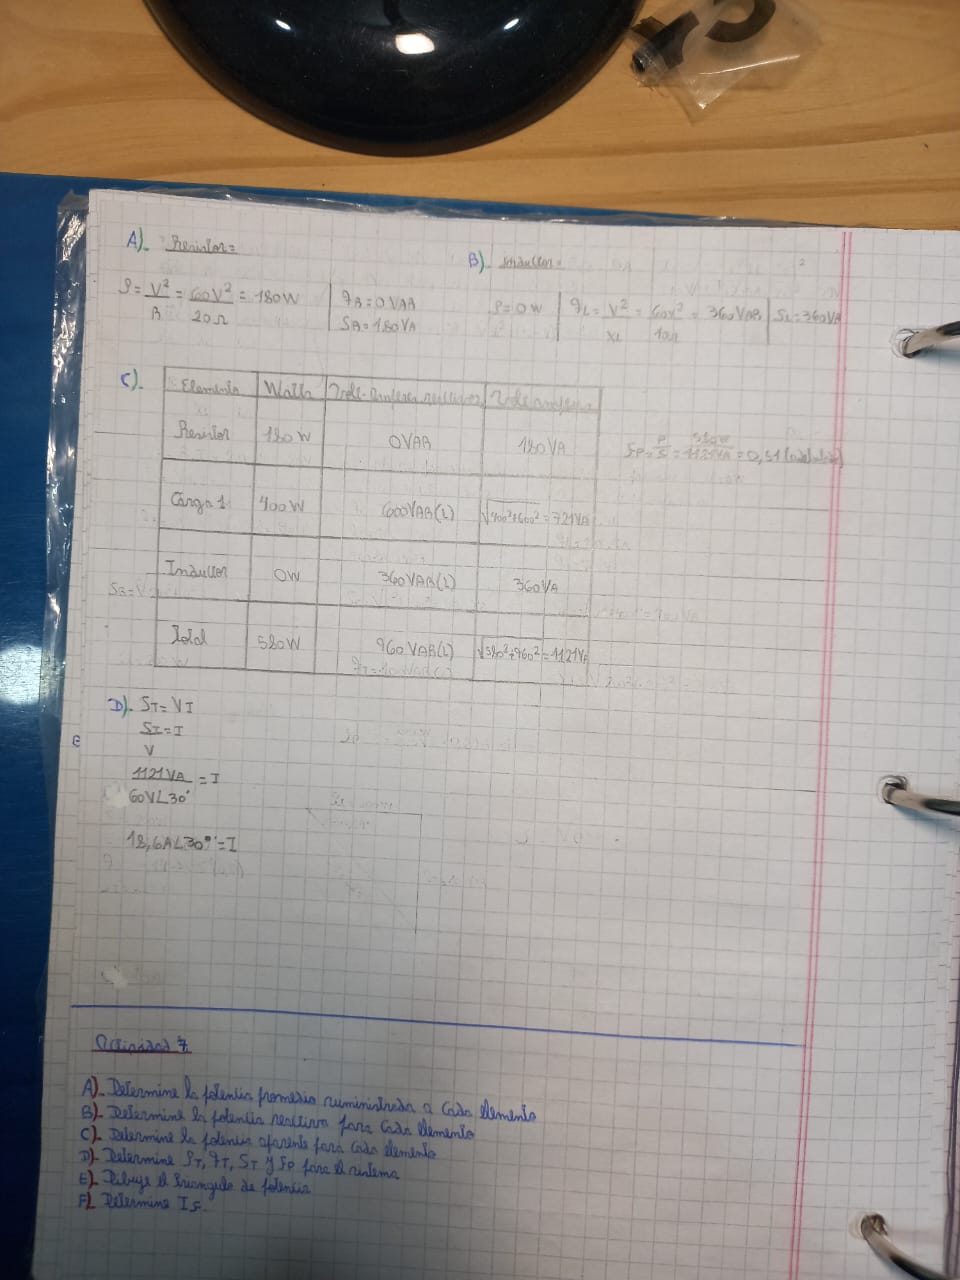 A)- Resistor=
P= V²/R = 60V²/20Ω = 180W | qR=0VAR
SR=180VA
B)- Inductor=
P=0W | qL= V²/XL = 60V²/10Ω = 360VAR | SL=360VA
C)-
Elemento | Watts | Volt-Amperes reactivos | Volt amperes
Resistor | 180W | 0VAR | 180VA
FP= P/S = 580W/1121VA = 0,51
Carga 1 | 400W | 600VAR(L) | √400²+600² = 721VA
Inductor | 0W | 360VAR(L) | 360VA
Total | 580W | 960VAR(L) | √580²+960² = 1121VA
D)- ST= VI
ST=I
V
E
1121VA/60V∠30° = I
18,6A∠30°=I
Actividad 7
A)- Determine la potencia promedio suministrada a cada elemento
B)- Determine la potencia reactiva para cada elemento
C)- Determine la potencia aparente para cada elemento
D)- Determine PT, qT, ST y FP para el sistema
E)- Dibuje el triangulo de potencia
F)- Determine IS.